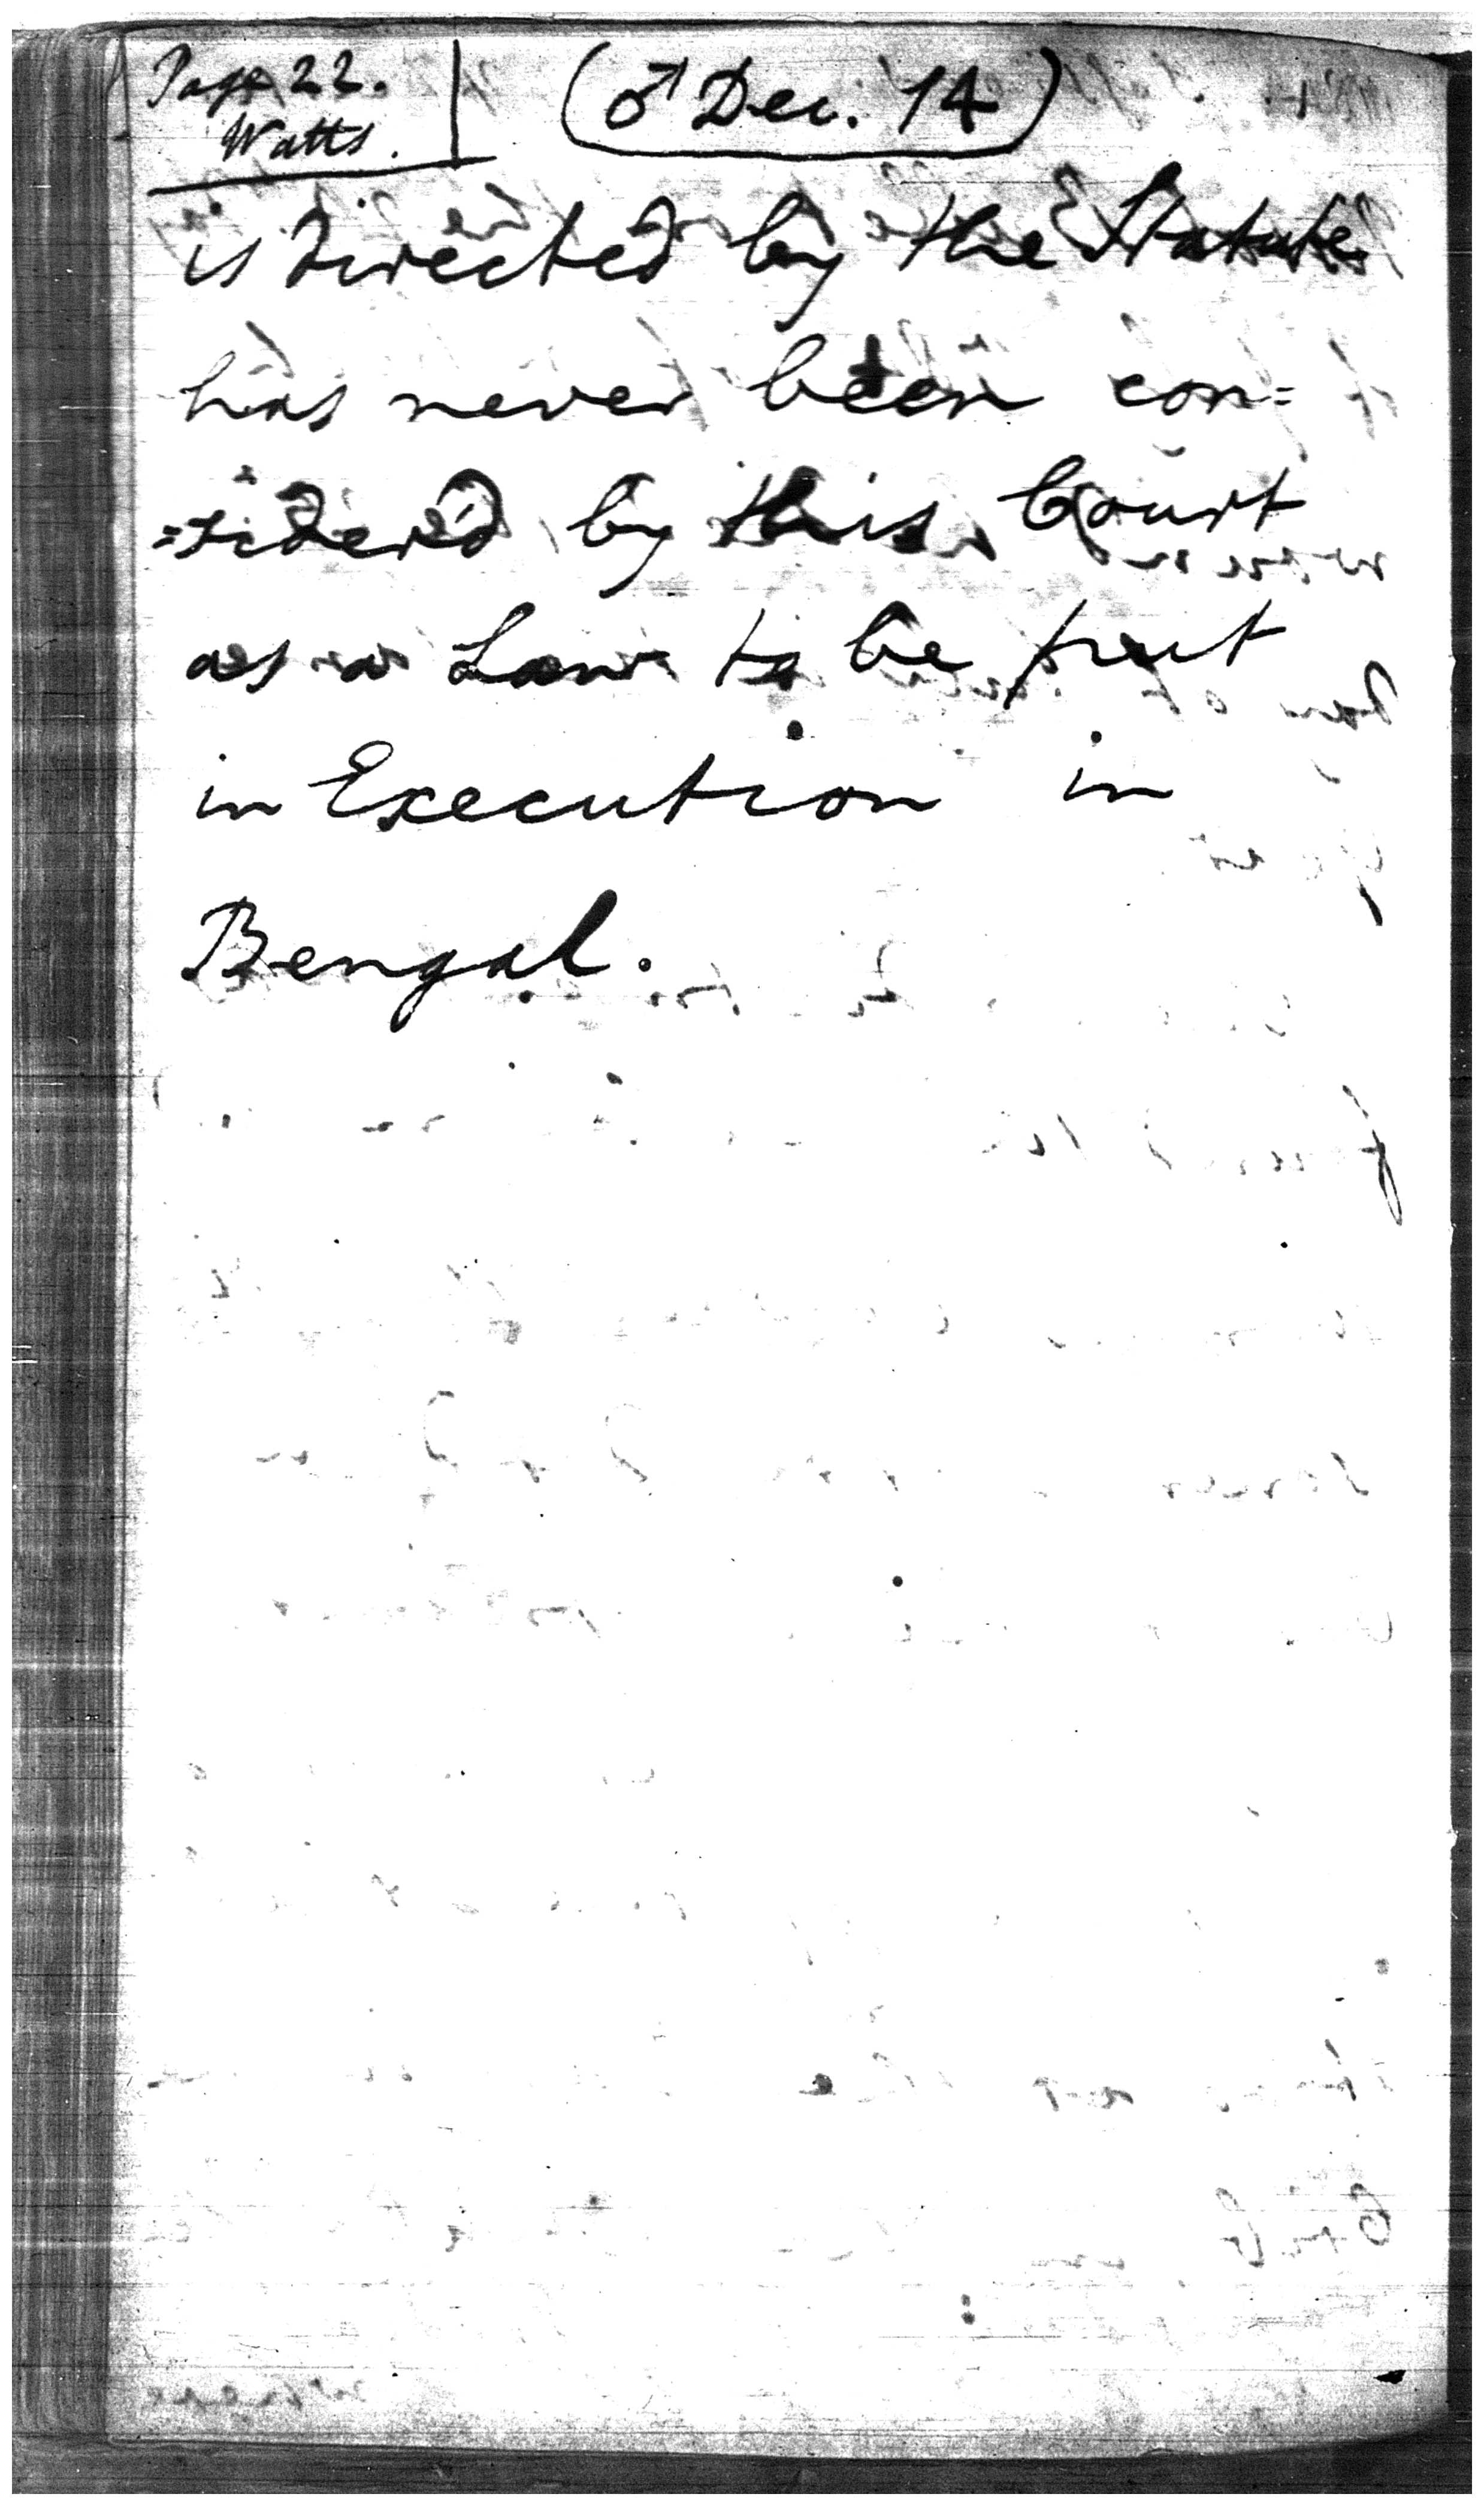 Page 22.
Watts.
(♂ Dec. 14)
is directed by the Statute
has never been con=
=sidered by this Court
as a Law to be put
in Execution in
Bengal.